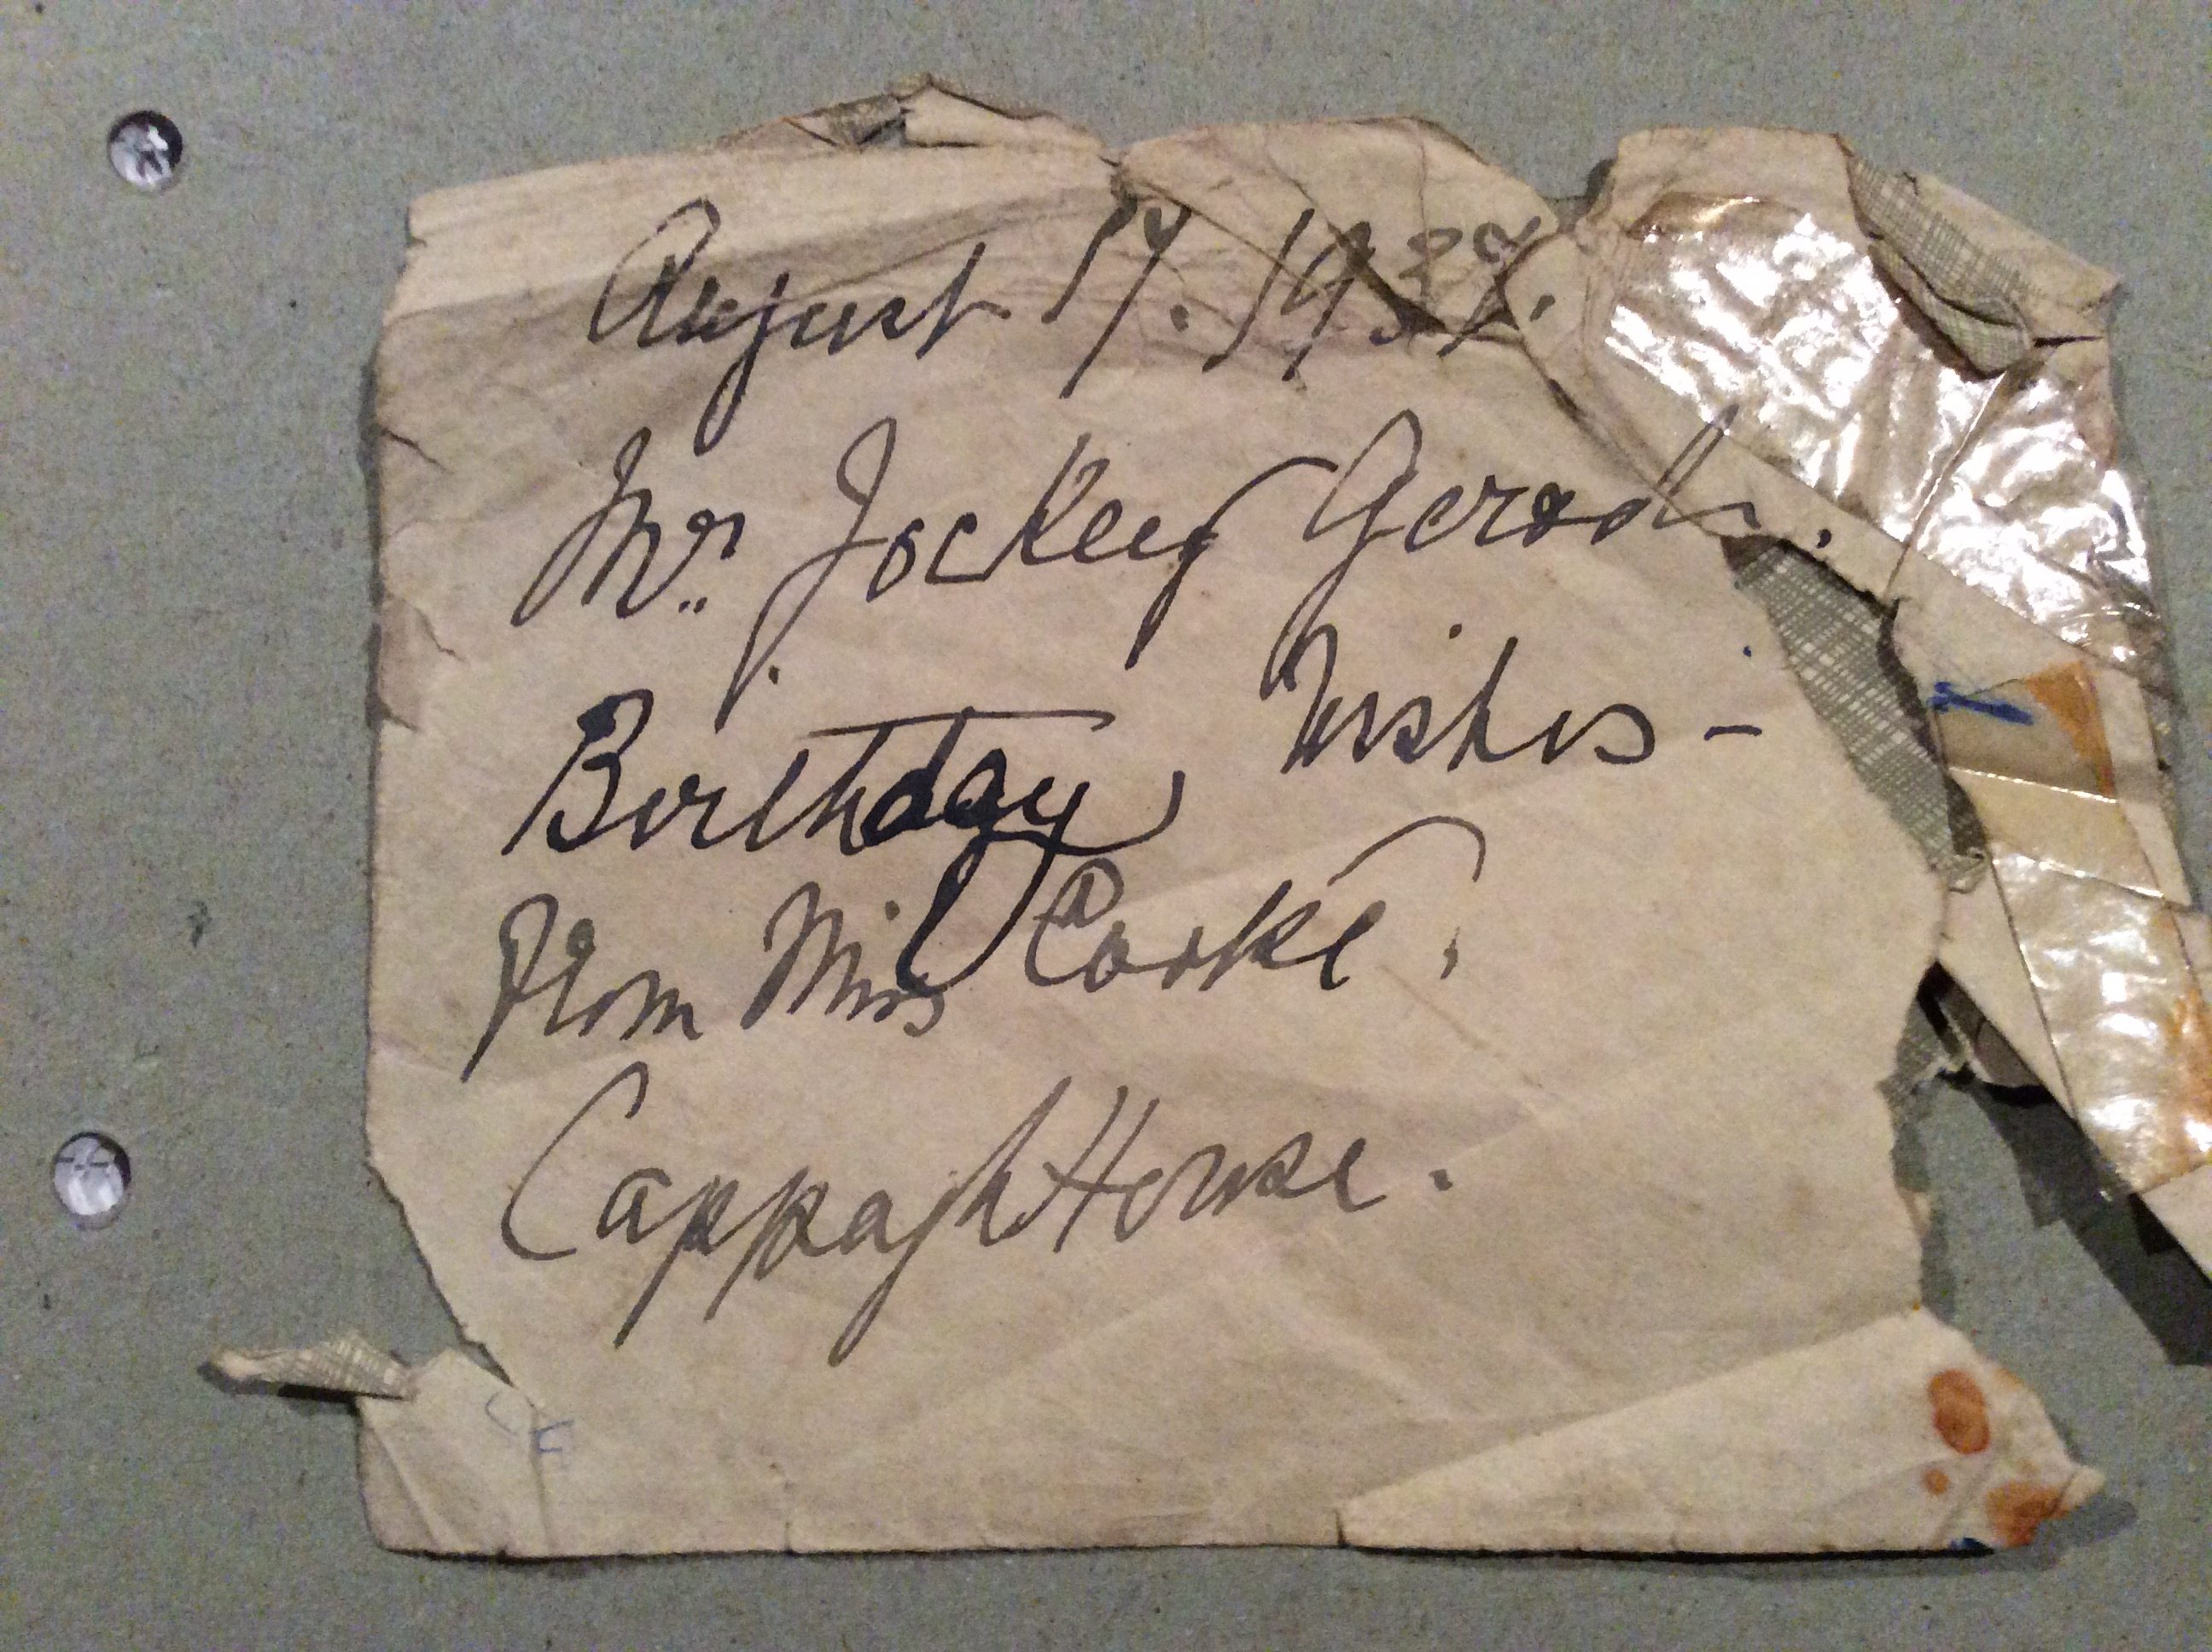 August 17. 1937.
Mr. Jockey Gerod.
Birthday Wishes -
From Miss Cooke,
Cappagh House.